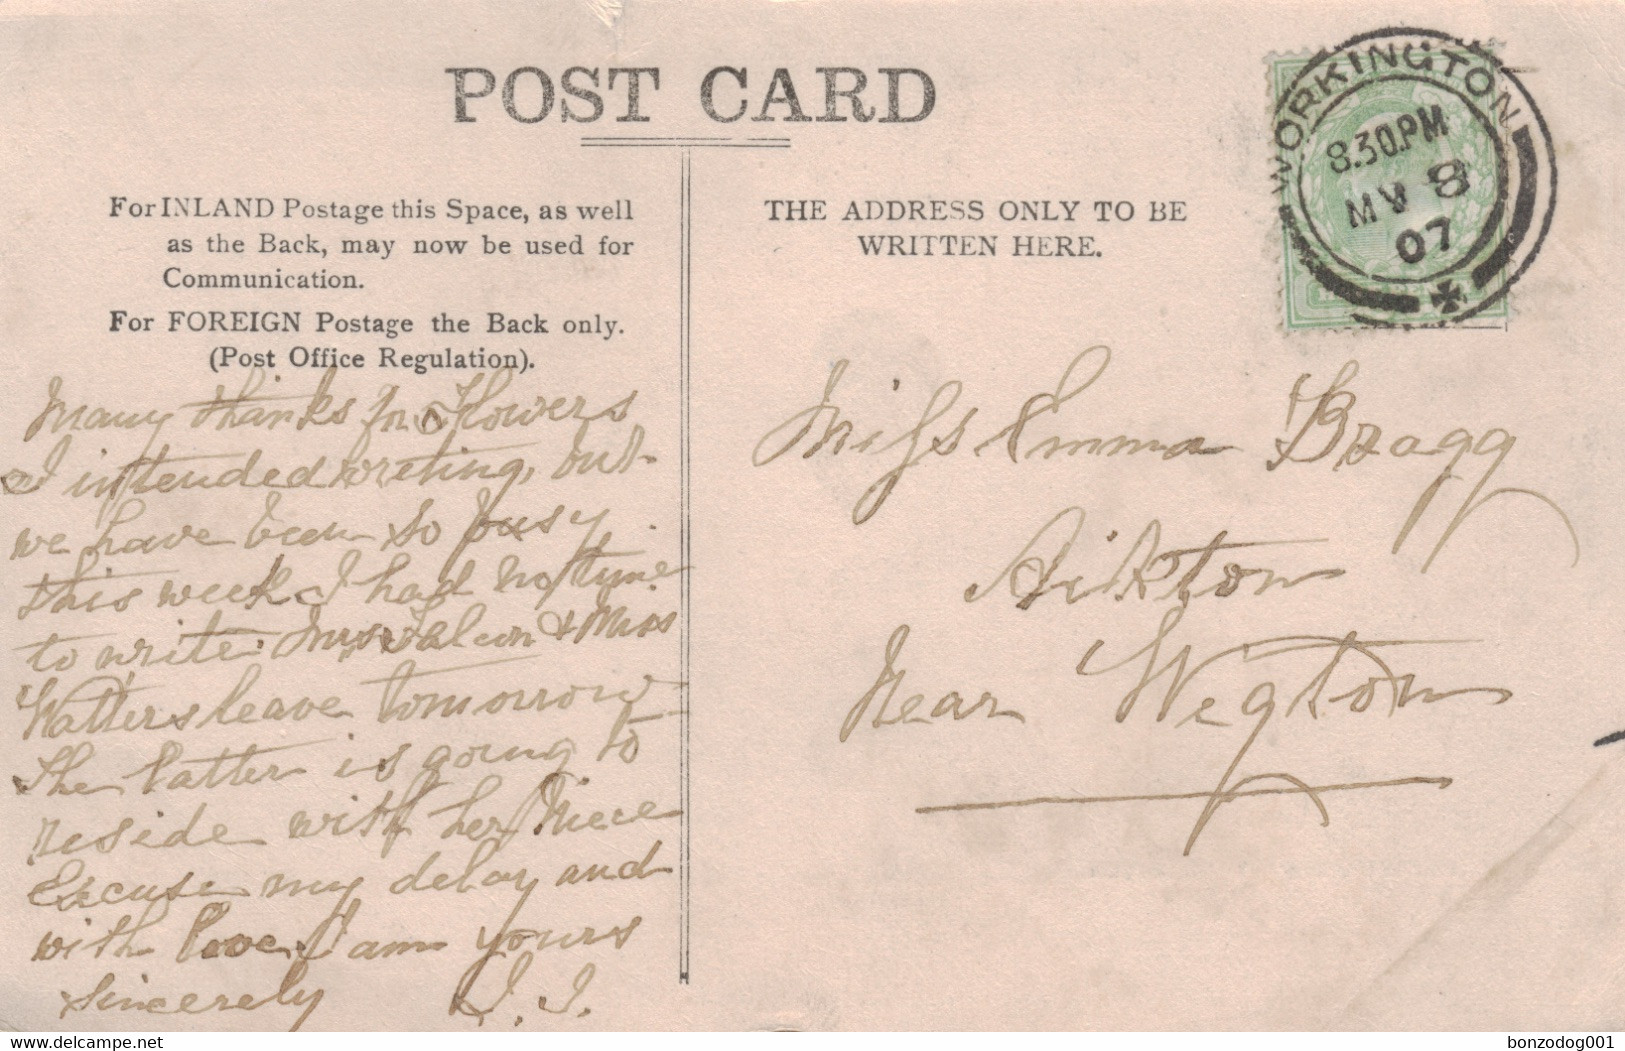 POST CARD
For INLAND Postage this Space, as well
as the Back, may now be used for
Communication.
For FOREIGN Postage the Back only.
(Post Office Regulation).
THE ADDRESS ONLY TO BE
WRITTEN HERE.
WORKINGTON
8.30PM
MY 8
07
Many thanks for Flowers
I intended writing, but
we have been so busy
this week I had no time
to write. Mrs Falcon & Miss
Watters leave tomorrow
The latter is going to
reside with her Niece
Excuse my delay and
with love I am yours
sincerely
Miss Emma Bragg
Aikton
Near Wegton
www.delcampe.net
bonzodog001